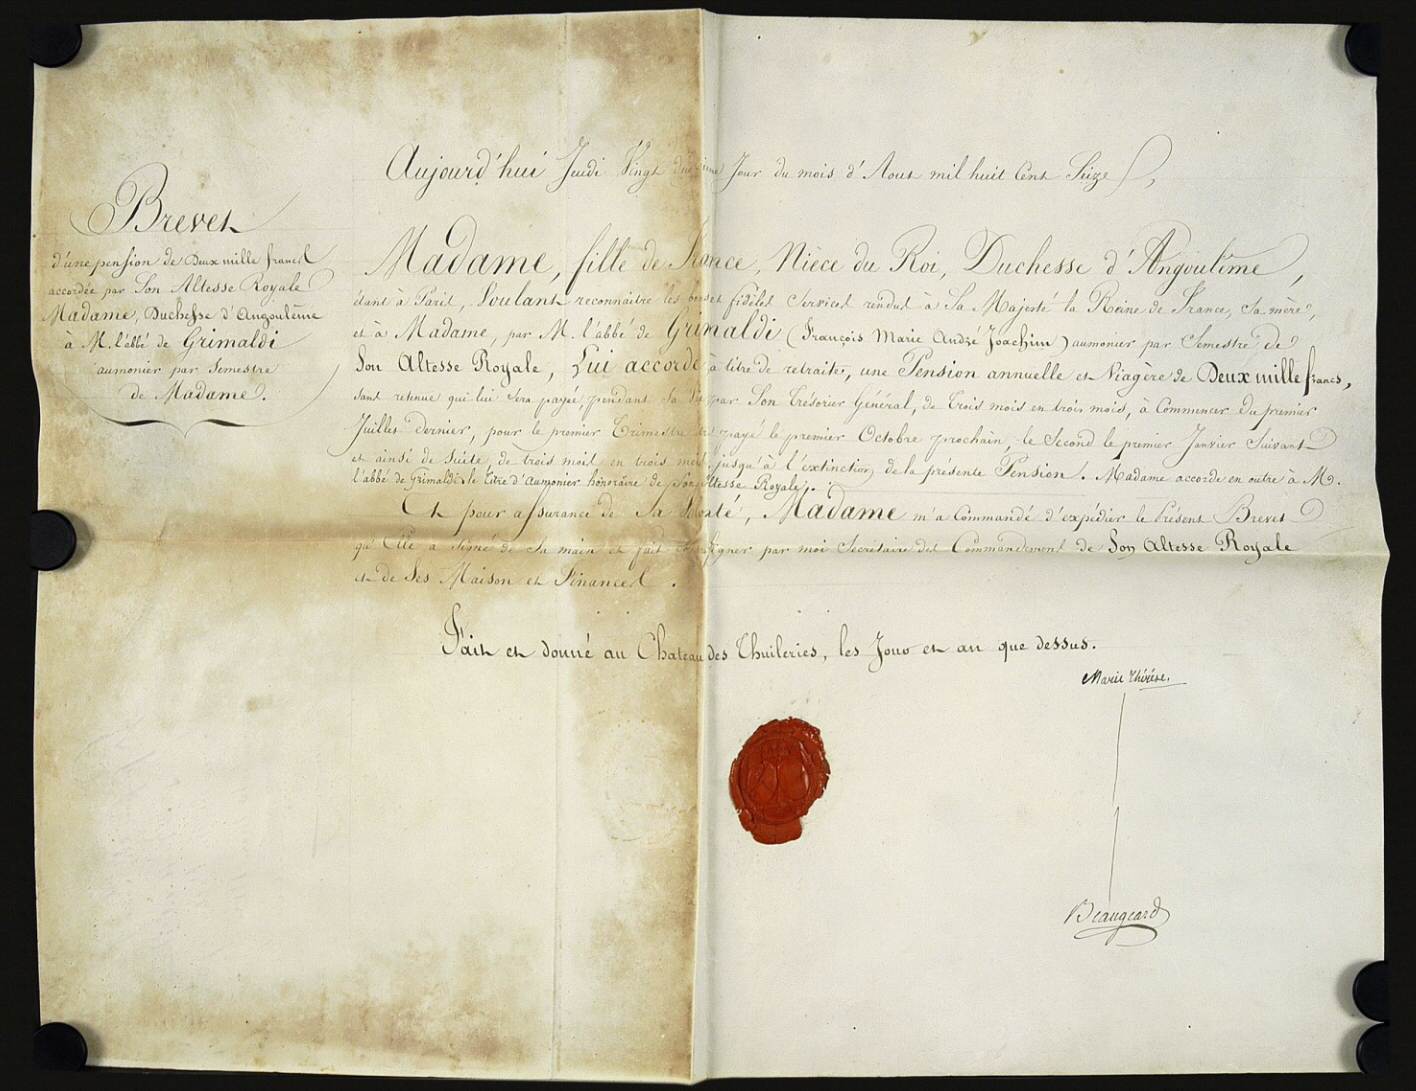 Aujourd'hui Jeudi Vingt deuxième Jour du mois d'Aout mil huit Cent Seize,
Brevet
d'une pension de Deux mille francs
accordée par Son Altesse Royale
Madame, Duchesse d'Angoulême
à M. l'abbé de Grimaldi
aumonier par Semestre
de Madame.
Madame, fille de France, Nièce du Roi, Duchesse d'Angoulême,
étant à Paris, Voulant reconnaitre les bons et fidèles Services rendus à Sa Majesté la Reine de France, Sa mère,
et à Madame, par M. l'abbé de Grimaldi (François Marie André Joachim) aumonier par Semestre de
Son Altesse Royale, Lui accorde à titre de retraite, une Pension annuelle et Viagère de Deux mille francs,
sans retenue qui lui sera payée, pendant sa vie par Son Trésorier Général, de trois mois en trois mois, à Commencer du premier
Juillet dernier, pour le premier Trimestre être payé le premier Octobre prochain, le Second le premier Janvier Suivant
et ainsi de Suite de trois mois en trois mois jusqu'à l'extinction de la présente Pension. Madame accorde en outre à M.
l'abbé de Grimaldi le titre d'aumonier honoraire de Son Altesse Royale.
Et pour assurance de Sa Volonté, Madame m'a Commandé d'expédier le Présent Brevet
qu'Elle a Signé de Sa main et fait Contresigner par moi Secrétaire des Commandemens de Son Altesse Royale
et de Ses Maison et Finances.
Fait et donné au Chateau des Thuileries, les Jour et an que dessus.
Marie Thérèse.
Beaugeard